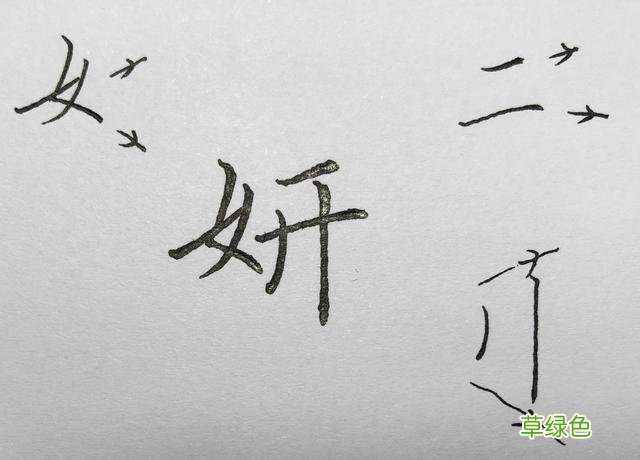 女
二
妍
草绿色